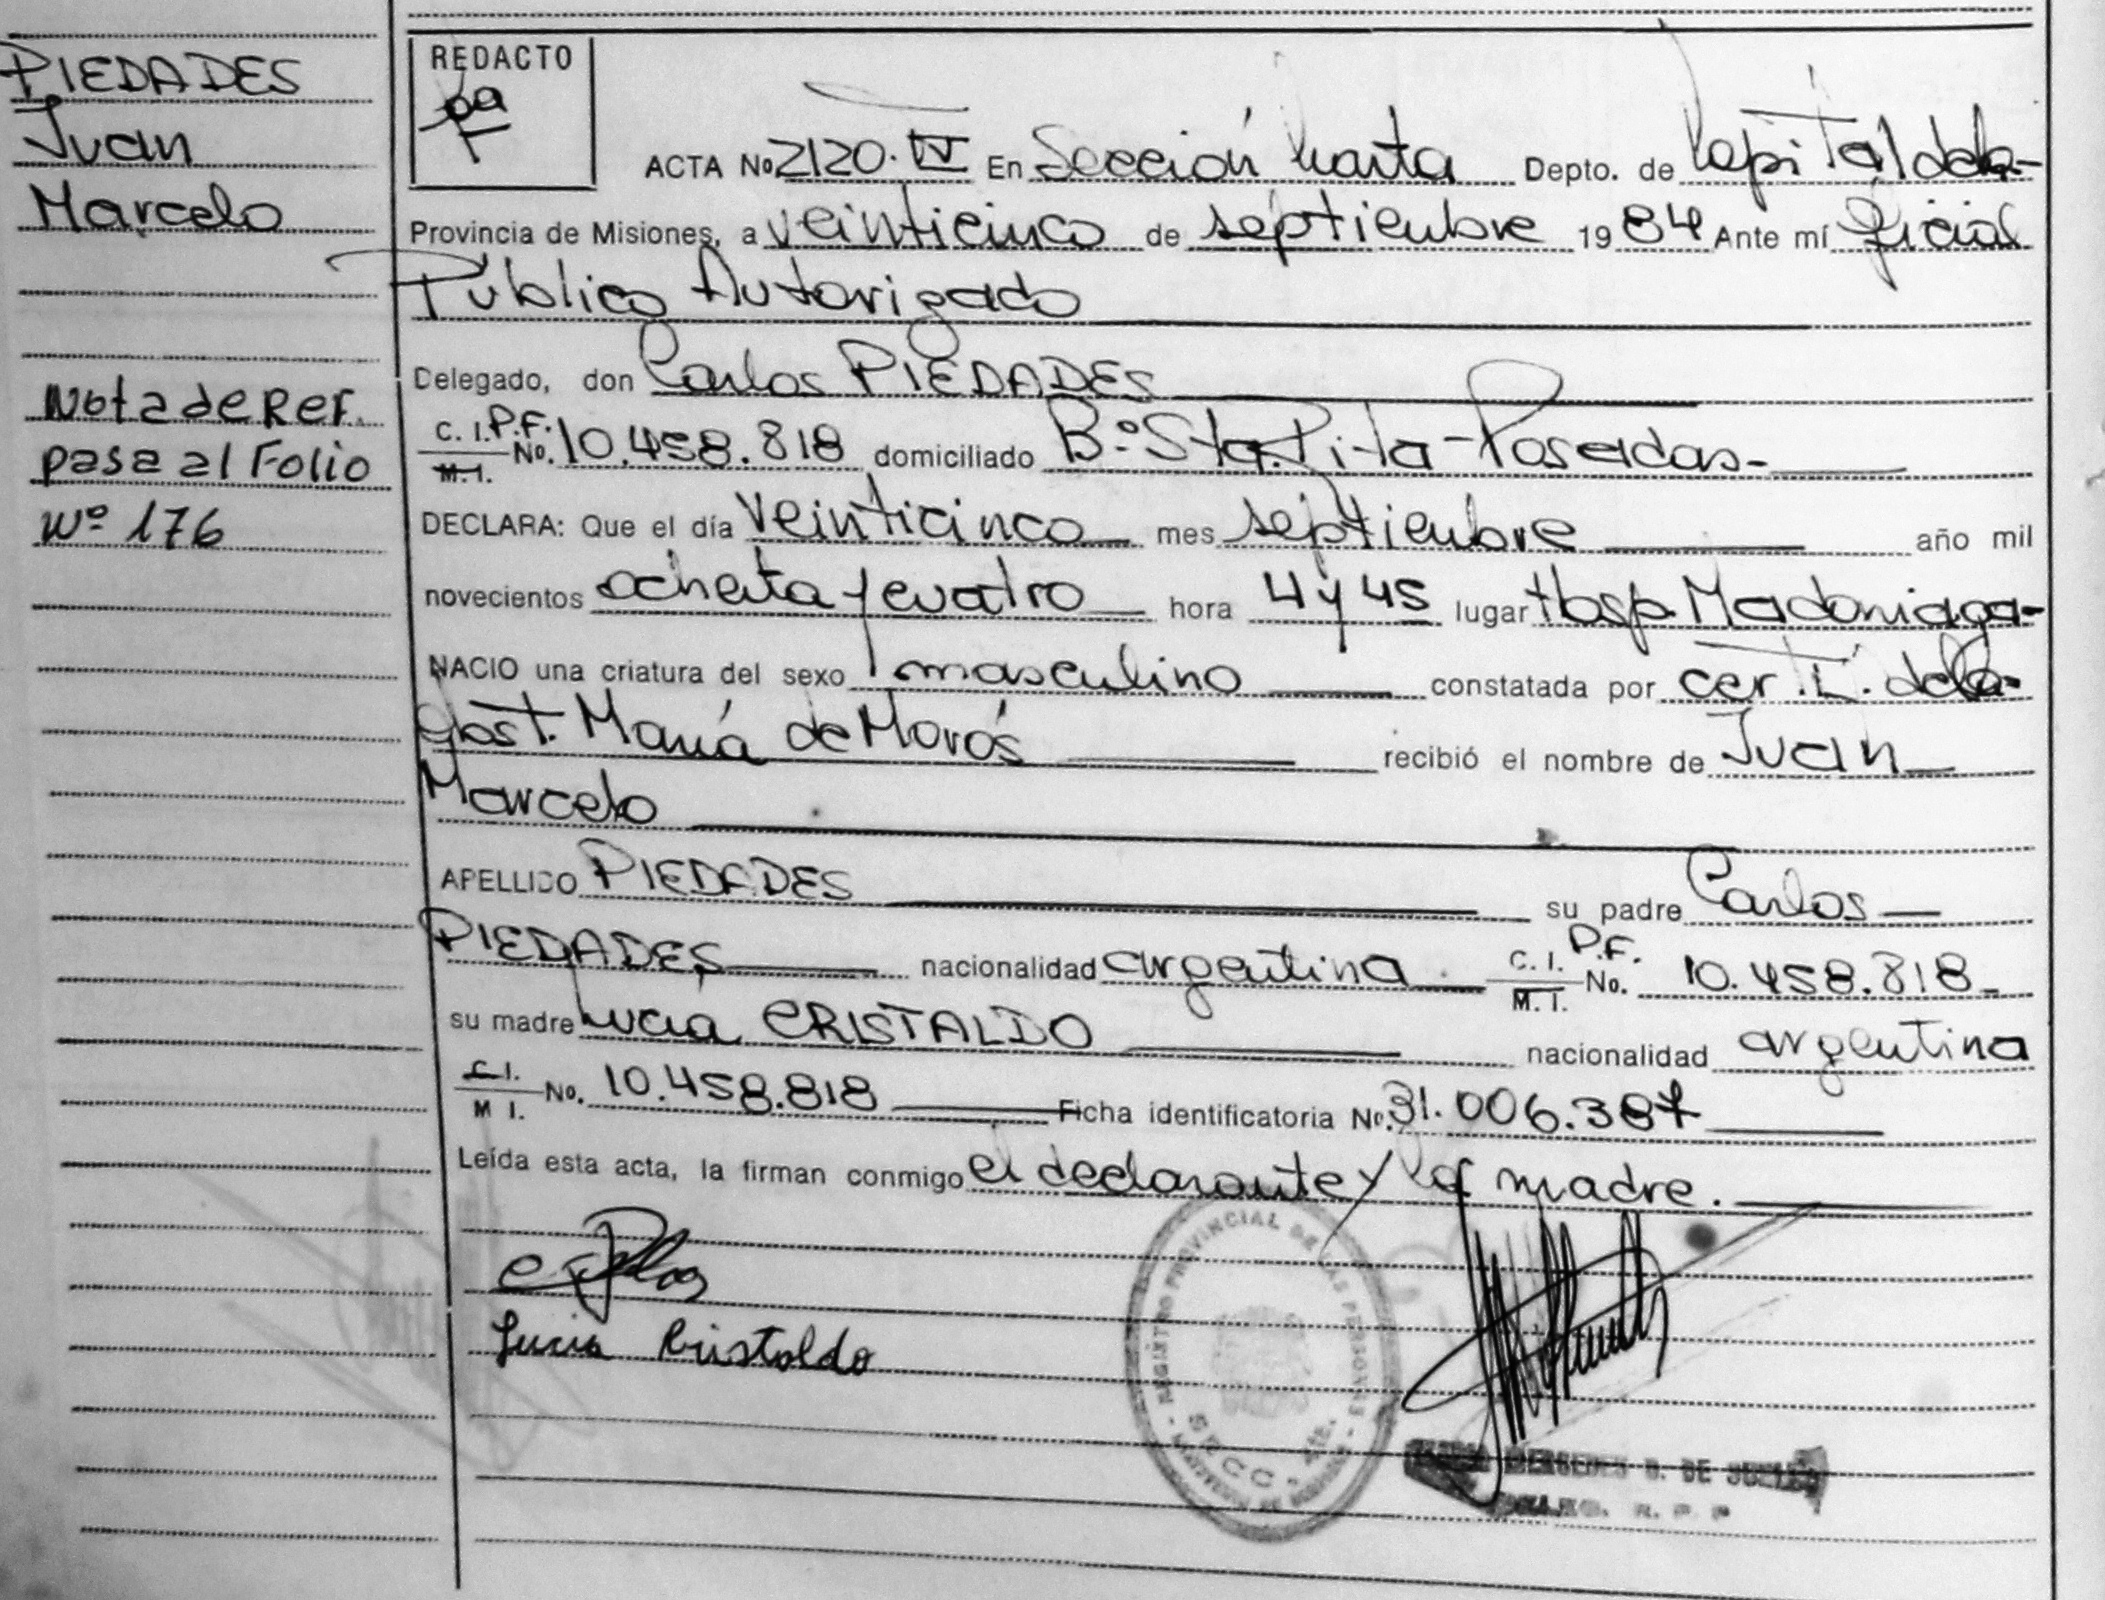 PIEDADES
Juan
Marcelo
Nota de Ref.
pasa al Folio
Nº 176
REDACTO
ACTA No 2120. IV En Sección Cuarta Depto. de Capital de la
Provincia de Misiones, a veinticinco de septiembre 1984 Ante mí Oficial
Público Autorizado
Delegado, don Carlos PIEDADES
C. I. P.F. M. I. No. 10.458.818 domiciliado Bº Sta. Rita - Posadas -
DECLARA: Que el día veinticinco mes septiembre año mil
novecientos ochenta y cuatro hora 4 y 45 lugar Hosp. Madariaga -
NACIO una criatura del sexo masculino constatada por cer. T. de la
Obst. María de Morós recibió el nombre de Juan
Marcelo
APELLIDO PIEDADES su padre Carlos
PIEDADES nacionalidad argentina C. I. P.F. M. I. No. 10.458.818
su madre Lucia CRISTALDO nacionalidad argentina
C. I. M I. No. 10.458.818 Ficha identificatoria No. 31.006.387
Leída esta acta, la firman conmigo el declarante y la madre.
Lucia Cristaldo
REGISTRO PROVINCIAL DE LAS PERSONAS
SECC. 4ta.
MERCEDES D. DE